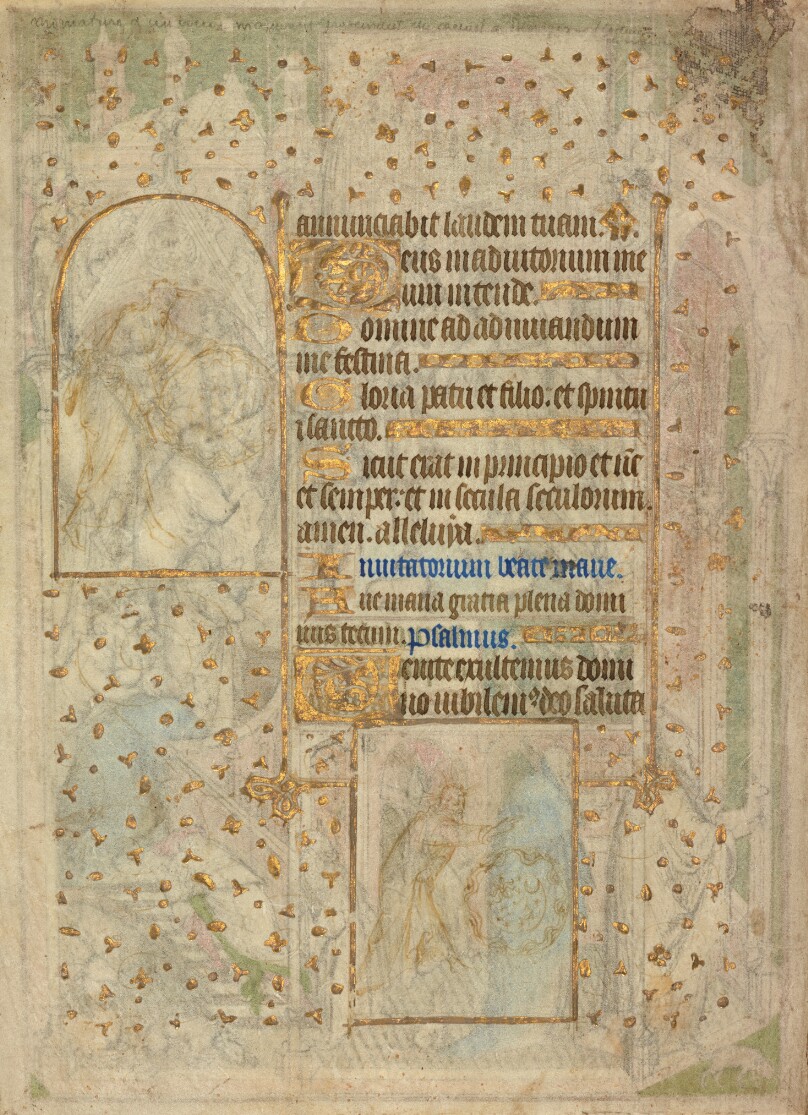 annunciabit laudem tuam.
Deus in adiutorium me
um intende.
Domine ad adiuuandum
me festina.
Gloria patri et filio. et spiritu
i sancto.
Sicut erat in principio et nūc
et semper: et in secula seculorum.
amen. alleluya.
Inuitatorium beate marie.
Aue maria gratia plena domi
nus tecum. psalmus.
Uenite exultemus domi
no iubilem⁹ deo saluta